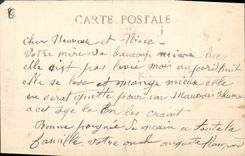 CARTE POSTALE
cher Neuveux et Nièce
Votre mère va beaucoup mieux hier
elle s'est pas levée mais aujourd'huit
elle se leve et mange mieux elle
en serat quitte pour un mauvais rhume
a cet age la on les craint
Bonne poigne de main a toute la
famille votre oncle auguste